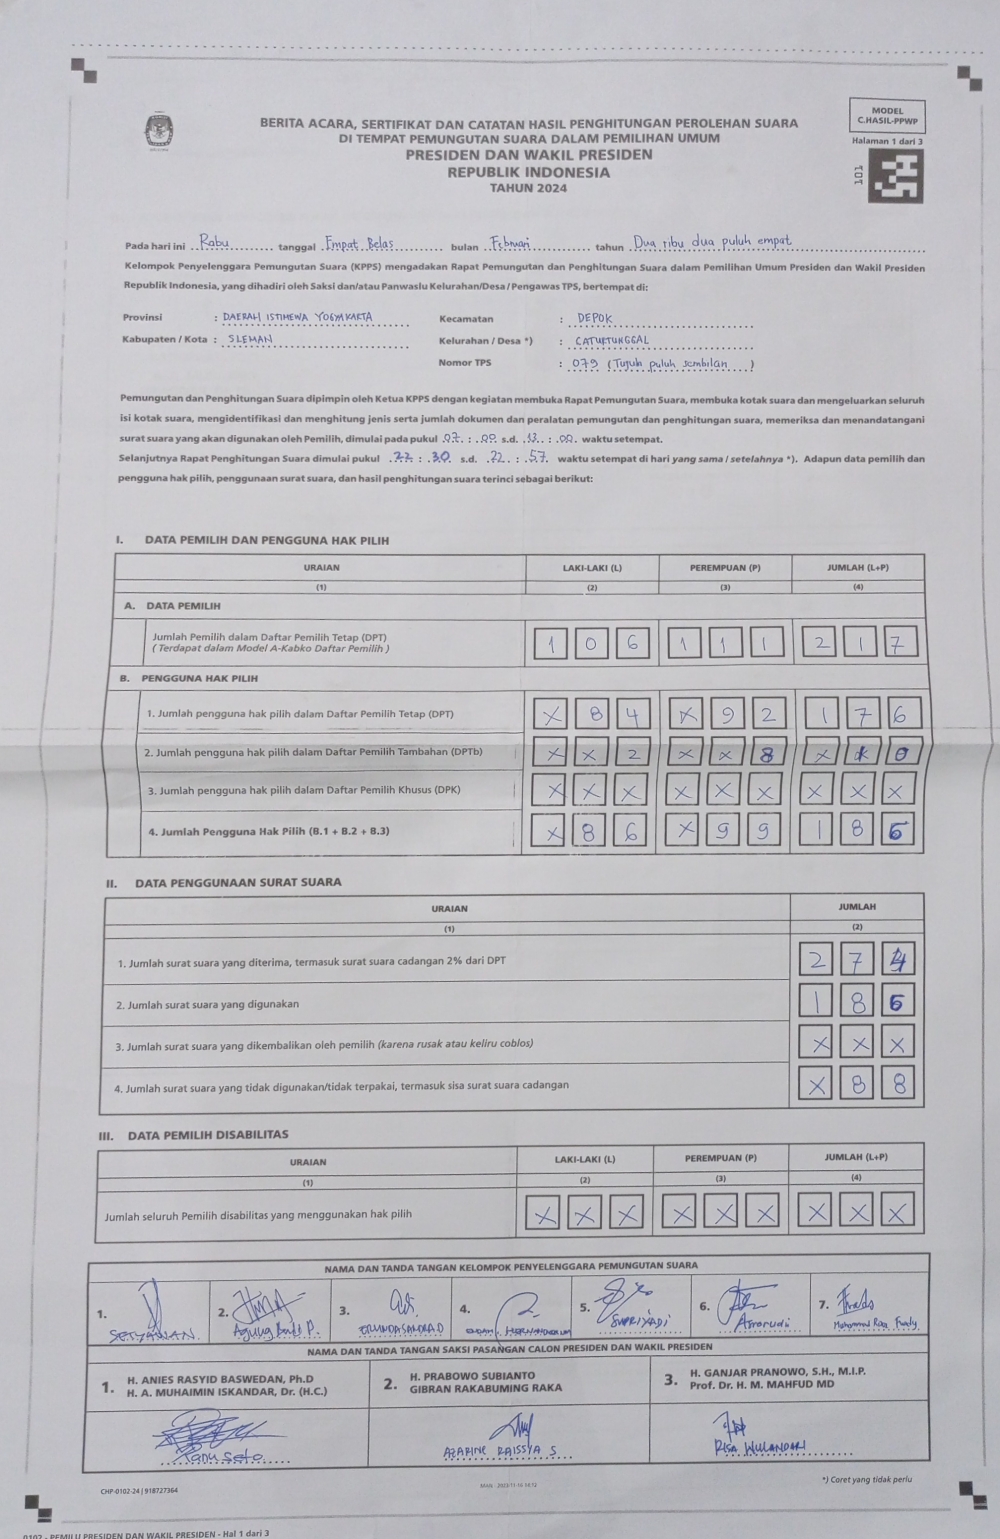 MODEL
C.HASIL-PPWP
Halaman 1 dari 3
101
BERITA ACARA, SERTIFIKAT DAN CATATAN HASIL PENGHITUNGAN PEROLEHAN SUARA
DI TEMPAT PEMUNGUTAN SUARA DALAM PEMILIHAN UMUM
PRESIDEN DAN WAKIL PRESIDEN
REPUBLIK INDONESIA
TAHUN 2024
Pada hari ini Rabu tanggal Empat Belas bulan Februari tahun Dua ribu dua puluh empat
Kelompok Penyelenggara Pemungutan Suara (KPPS) mengadakan Rapat Pemungutan dan Penghitungan Suara dalam Pemilihan Umum Presiden dan Wakil Presiden
Republik Indonesia, yang dihadiri oleh Saksi dan/atau Panwaslu Kelurahan/Desa/Pengawas TPS, bertempat di:
Provinsi : DAERAH ISTIMEWA YOGYAKARTA Kecamatan : DEPOK
Kabupaten / Kota : SLEMAN Kelurahan / Desa *) : CATURTUNGGAL
Nomor TPS : 079 (Tujuh puluh sembilan)
Pemungutan dan Penghitungan Suara dipimpin oleh Ketua KPPS dengan kegiatan membuka Rapat Pemungutan Suara, membuka kotak suara dan mengeluarkan seluruh
isi kotak suara, mengidentifikasi dan menghitung jenis serta jumlah dokumen dan peralatan pemungutan dan penghitungan suara, memeriksa dan menandatangani
surat suara yang akan digunakan oleh Pemilih, dimulai pada pukul 07 : 00 s.d. 13 : 00 waktu setempat.
Selanjutnya Rapat Penghitungan Suara dimulai pukul 22 : 30 s.d. 22 : 57 waktu setempat di hari yang sama / setelahnya *). Adapun data pemilih dan
pengguna hak pilih, penggunaan surat suara, dan hasil penghitungan suara terinci sebagai berikut:
I. DATA PEMILIH DAN PENGGUNA HAK PILIH
URAIAN LAKI-LAKI (L) PEREMPUAN (P) JUMLAH (L+P)
(1) (2) (3) (4)
A. DATA PEMILIH
Jumlah Pemilih dalam Daftar Pemilih Tetap (DPT) 1 0 6 1 1 1 2 1 7
( Terdapat dalam Model A-Kabko Daftar Pemilih )
B. PENGGUNA HAK PILIH
1. Jumlah pengguna hak pilih dalam Daftar Pemilih Tetap (DPT) X 8 4 X 9 2 1 7 6
2. Jumlah pengguna hak pilih dalam Daftar Pemilih Tambahan (DPTb) X X 2 X X 8 X
3. Jumlah pengguna hak pilih dalam Daftar Pemilih Khusus (DPK) X X X X X X X X X
4. Jumlah Pengguna Hak Pilih (B.1 + B.2 + B.3) X 8 6 X 9 9 1 8 6
II. DATA PENGGUNAAN SURAT SUARA
URAIAN JUMLAH
(1) (2)
1. Jumlah surat suara yang diterima, termasuk surat suara cadangan 2% dari DPT 2 7 4
2. Jumlah surat suara yang digunakan 1 8 6
3. Jumlah surat suara yang dikembalikan oleh pemilih (karena rusak atau keliru coblos) X X X
4. Jumlah surat suara yang tidak digunakan/tidak terpakai, termasuk sisa surat suara cadangan X 8 8
III. DATA PEMILIH DISABILITAS
URAIAN LAKI-LAKI (L) PEREMPUAN (P) JUMLAH (L+P)
(1) (2) (3) (4)
Jumlah seluruh Pemilih disabilitas yang menggunakan hak pilih X X X X X X X X X
NAMA DAN TANDA TANGAN KELOMPOK PENYELENGGARA PEMUNGUTAN SUARA
1. 2. 3. 4. 5. 6. 7.
SETYAWAN SUPRIYADI Asrorudi
NAMA DAN TANDA TANGAN SAKSI PASANGAN CALON PRESIDEN DAN WAKIL PRESIDEN
1. H. ANIES RASYID BASWEDAN, Ph.D
H. A. MUHAIMIN ISKANDAR, Dr. (H.C.)
2. H. PRABOWO SUBIANTO
GIBRAN RAKABUMING RAKA
3. H. GANJAR PRANOWO, S.H., M.I.P.
Prof. Dr. H. M. MAHFUD MD
AZARINE RAISSYA S RISA WULANDARI
*) Coret yang tidak perlu
CHP-0102-24 | 918727364
0102 - PEMILU PRESIDEN DAN WAKIL PRESIDEN - Hal 1 dari 3